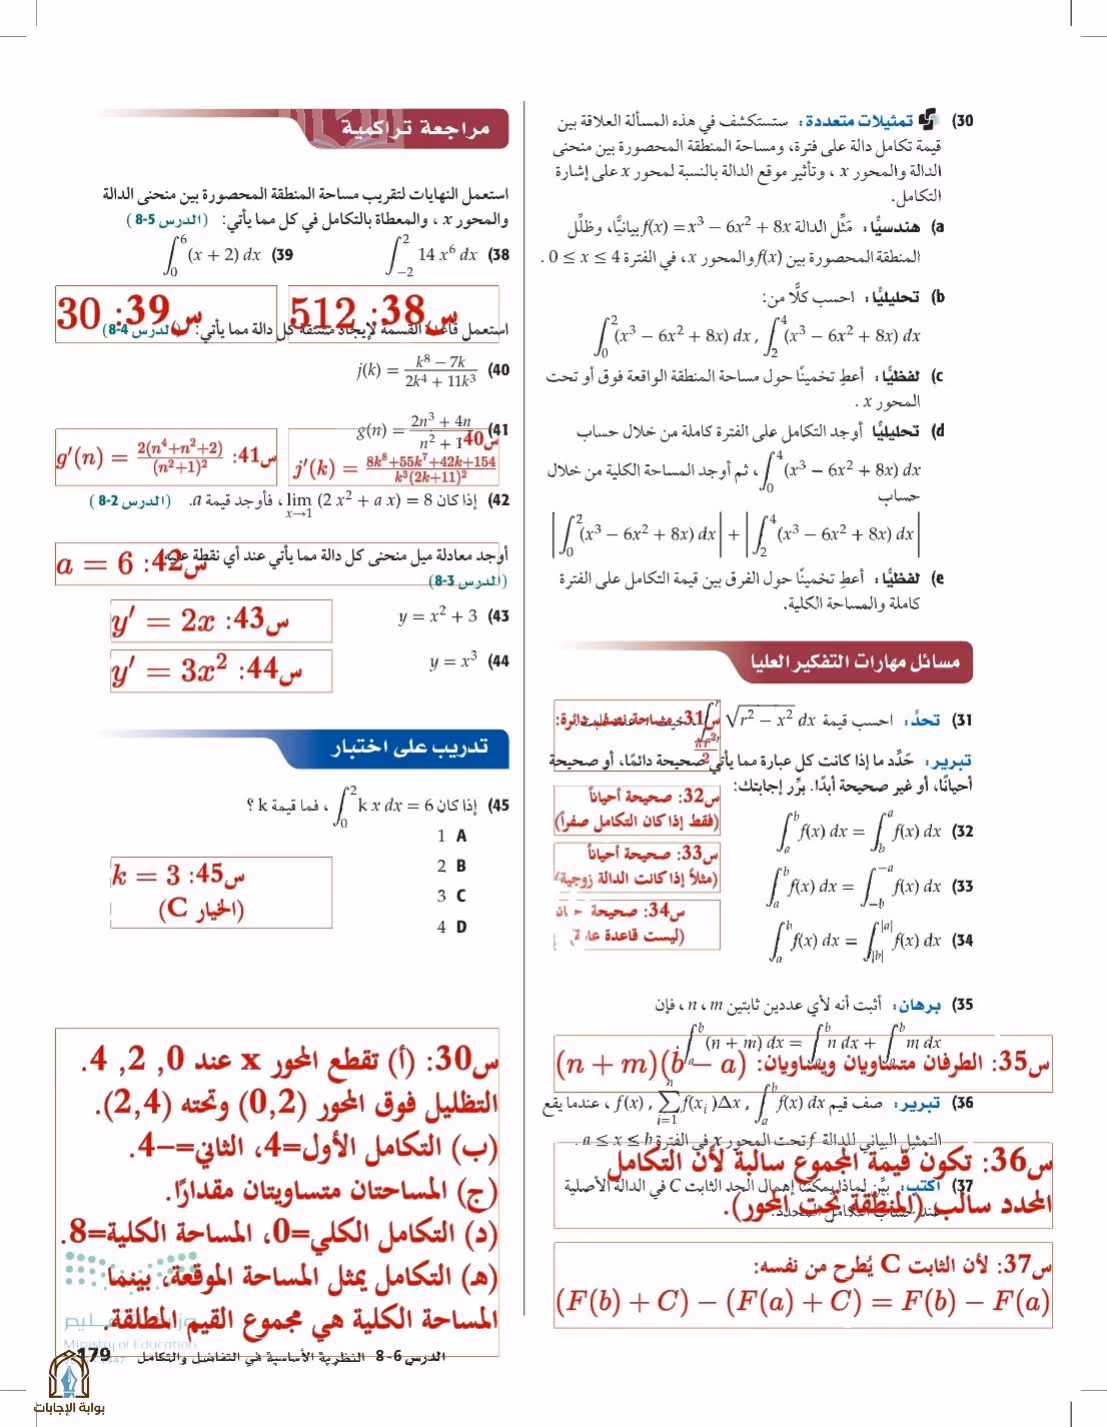 (30 تمثيلات متعددة: ستستكشف في هذه المسألة العلاقة بين
قيمة تكامل دالة على فترة، ومساحة المنطقة المحصورة بين منحنى
الدالة والمحور x ، وتأثير موقع الدالة بالنسبة لمحور x على إشارة
التكامل.
(a هندسيًّا: مَثِّل الدالة f(x) = x³ − 6x² + 8x بيانيًّا، وظلِّل
المنطقة المحصورة بين f(x) والمحور x، في الفترة 0 ≤ x ≤ 4 .
(b تحليليًّا: احسب كلًّا من:
∫₀²(x³ − 6x² + 8x) dx , ∫₂⁴(x³ − 6x² + 8x) dx
(c لفظيًّا: أعطِ تخمينًا حول مساحة المنطقة الواقعة فوق أو تحت
المحور x .
(d تحليليًّا أوجد التكامل على الفترة كاملة من خلال حساب
∫₀⁴(x³ − 6x² + 8x) dx ، ثم أوجد المساحة الكلية من خلال
حساب
|∫₀²(x³ − 6x² + 8x) dx| + |∫₂⁴(x³ − 6x² + 8x) dx|
(e لفظيًّا: أعطِ تخمينًا حول الفرق بين قيمة التكامل على الفترة
كاملة والمساحة الكلية.
مسائل مهارات التفكير العليا
(31 تحدٍّ: احسب قيمة √(r² − x²) dx
س31: مساحة نصف دائرة:
πr²/2
تبرير: حَدِّد ما إذا كانت كل عبارة مما يأتي صحيحة دائمًا، أو صحيحة
أحيانًا، أو غير صحيحة أبدًا. برِّر إجابتك:
(32 ∫ₐᵇ f(x) dx = ∫_b^a f(x) dx
س32: صحيحة أحياناً
(فقط إذا كان التكامل صفراً)
(33 ∫ₐᵇ f(x) dx = ∫_{−b}^{−a} f(x) dx
س33: صحيحة أحياناً
(مثلاً إذا كانت الدالة زوجية)
(34 ∫ₐᵇ f(x) dx = ∫_{|b|}^{|a|} f(x) dx
س34: صحيحة
(ليست قاعدة
(35 برهان: أثبت أنه لأي عددين ثابتين n ، m ، فإن
∫ₐᵇ (n + m) dx = ∫ₐᵇ n dx + ∫ₐᵇ m dx
س35: الطرفان متساويان ويساويان: (n + m)(b − a)
(36 تبرير: صف قيم ∫ₐᵇ f(x) dx , ∑ᵢ₌₁ⁿ f(xᵢ)Δx , f(x) ، عندما يقع
التمثيل البياني للدالة f تحت المحور x في الفترة a ≤ x ≤ b .
س36: تكون قيمة المجموع سالبة لأن التكامل
المحدد سالب (المنطقة تحت المحور).
(37 اكتب: بيِّن لماذا يمكننا إهمال الحد الثابت C في الدالة الأصلية
عند حساب التكامل المحدد.
س37: لأن الثابت C يُطرح من نفسه:
(F(b) + C) − (F(a) + C) = F(b) − F(a)
مراجعة تراكمية
استعمل النهايات لتقريب مساحة المنطقة المحصورة بين منحنى الدالة
والمحور x ، والمعطاة بالتكامل في كل مما يأتي: (الدرس 5-8)
(38 ∫₋₂² 14 x⁶ dx
(39 ∫₀⁶ (x + 2) dx
س38: 512
س39: 30
استعمل قاعدة القسمة لإيجاد مشتقة كل دالة مما يأتي: (الدرس 4-8)
(40 j(k) = (k⁸ − 7k)/(2k⁴ + 11k³)
(41 g(n) = (2n³ + 4n)/(n² + 1)
س40: j′(k) = (8k⁸+55k⁷+42k+154)/(k³(2k+11)²)
س41: g′(n) = 2(n⁴+n²+2)/(n²+1)²
(42 إذا كان lim x→1 (2x² + ax) = 8 ، فأوجد قيمة a. (الدرس 2-8)
س42: a = 6
أوجد معادلة ميل منحنى كل دالة مما يأتي عند أي نقطة عليه:
(الدرس 3-8)
(43 y = x² + 3
س43: y′ = 2x
(44 y = x³
س44: y′ = 3x²
تدريب على اختبار
(45 إذا كان ∫₀² k x dx = 6 ، فما قيمة k ؟
1 A
2 B
3 C
4 D
س45: k = 3
(الخيار C)
س30: (أ) تقطع المحور x عند 0, 2, 4.
التظليل فوق المحور (0,2) وتحته (2,4).
(ب) التكامل الأول=4، الثاني=−4.
(ج) المساحتان متساويتان مقدارًا.
(د) التكامل الكلي=0، المساحة الكلية=8.
(هـ) التكامل يمثل المساحة الموقعة، بينما
المساحة الكلية هي مجموع القيم المطلقة.
Ministry of Education
الدرس 6-8 النظرية الأساسية في التفاضل والتكامل 179
1447
بوابة الإجابات